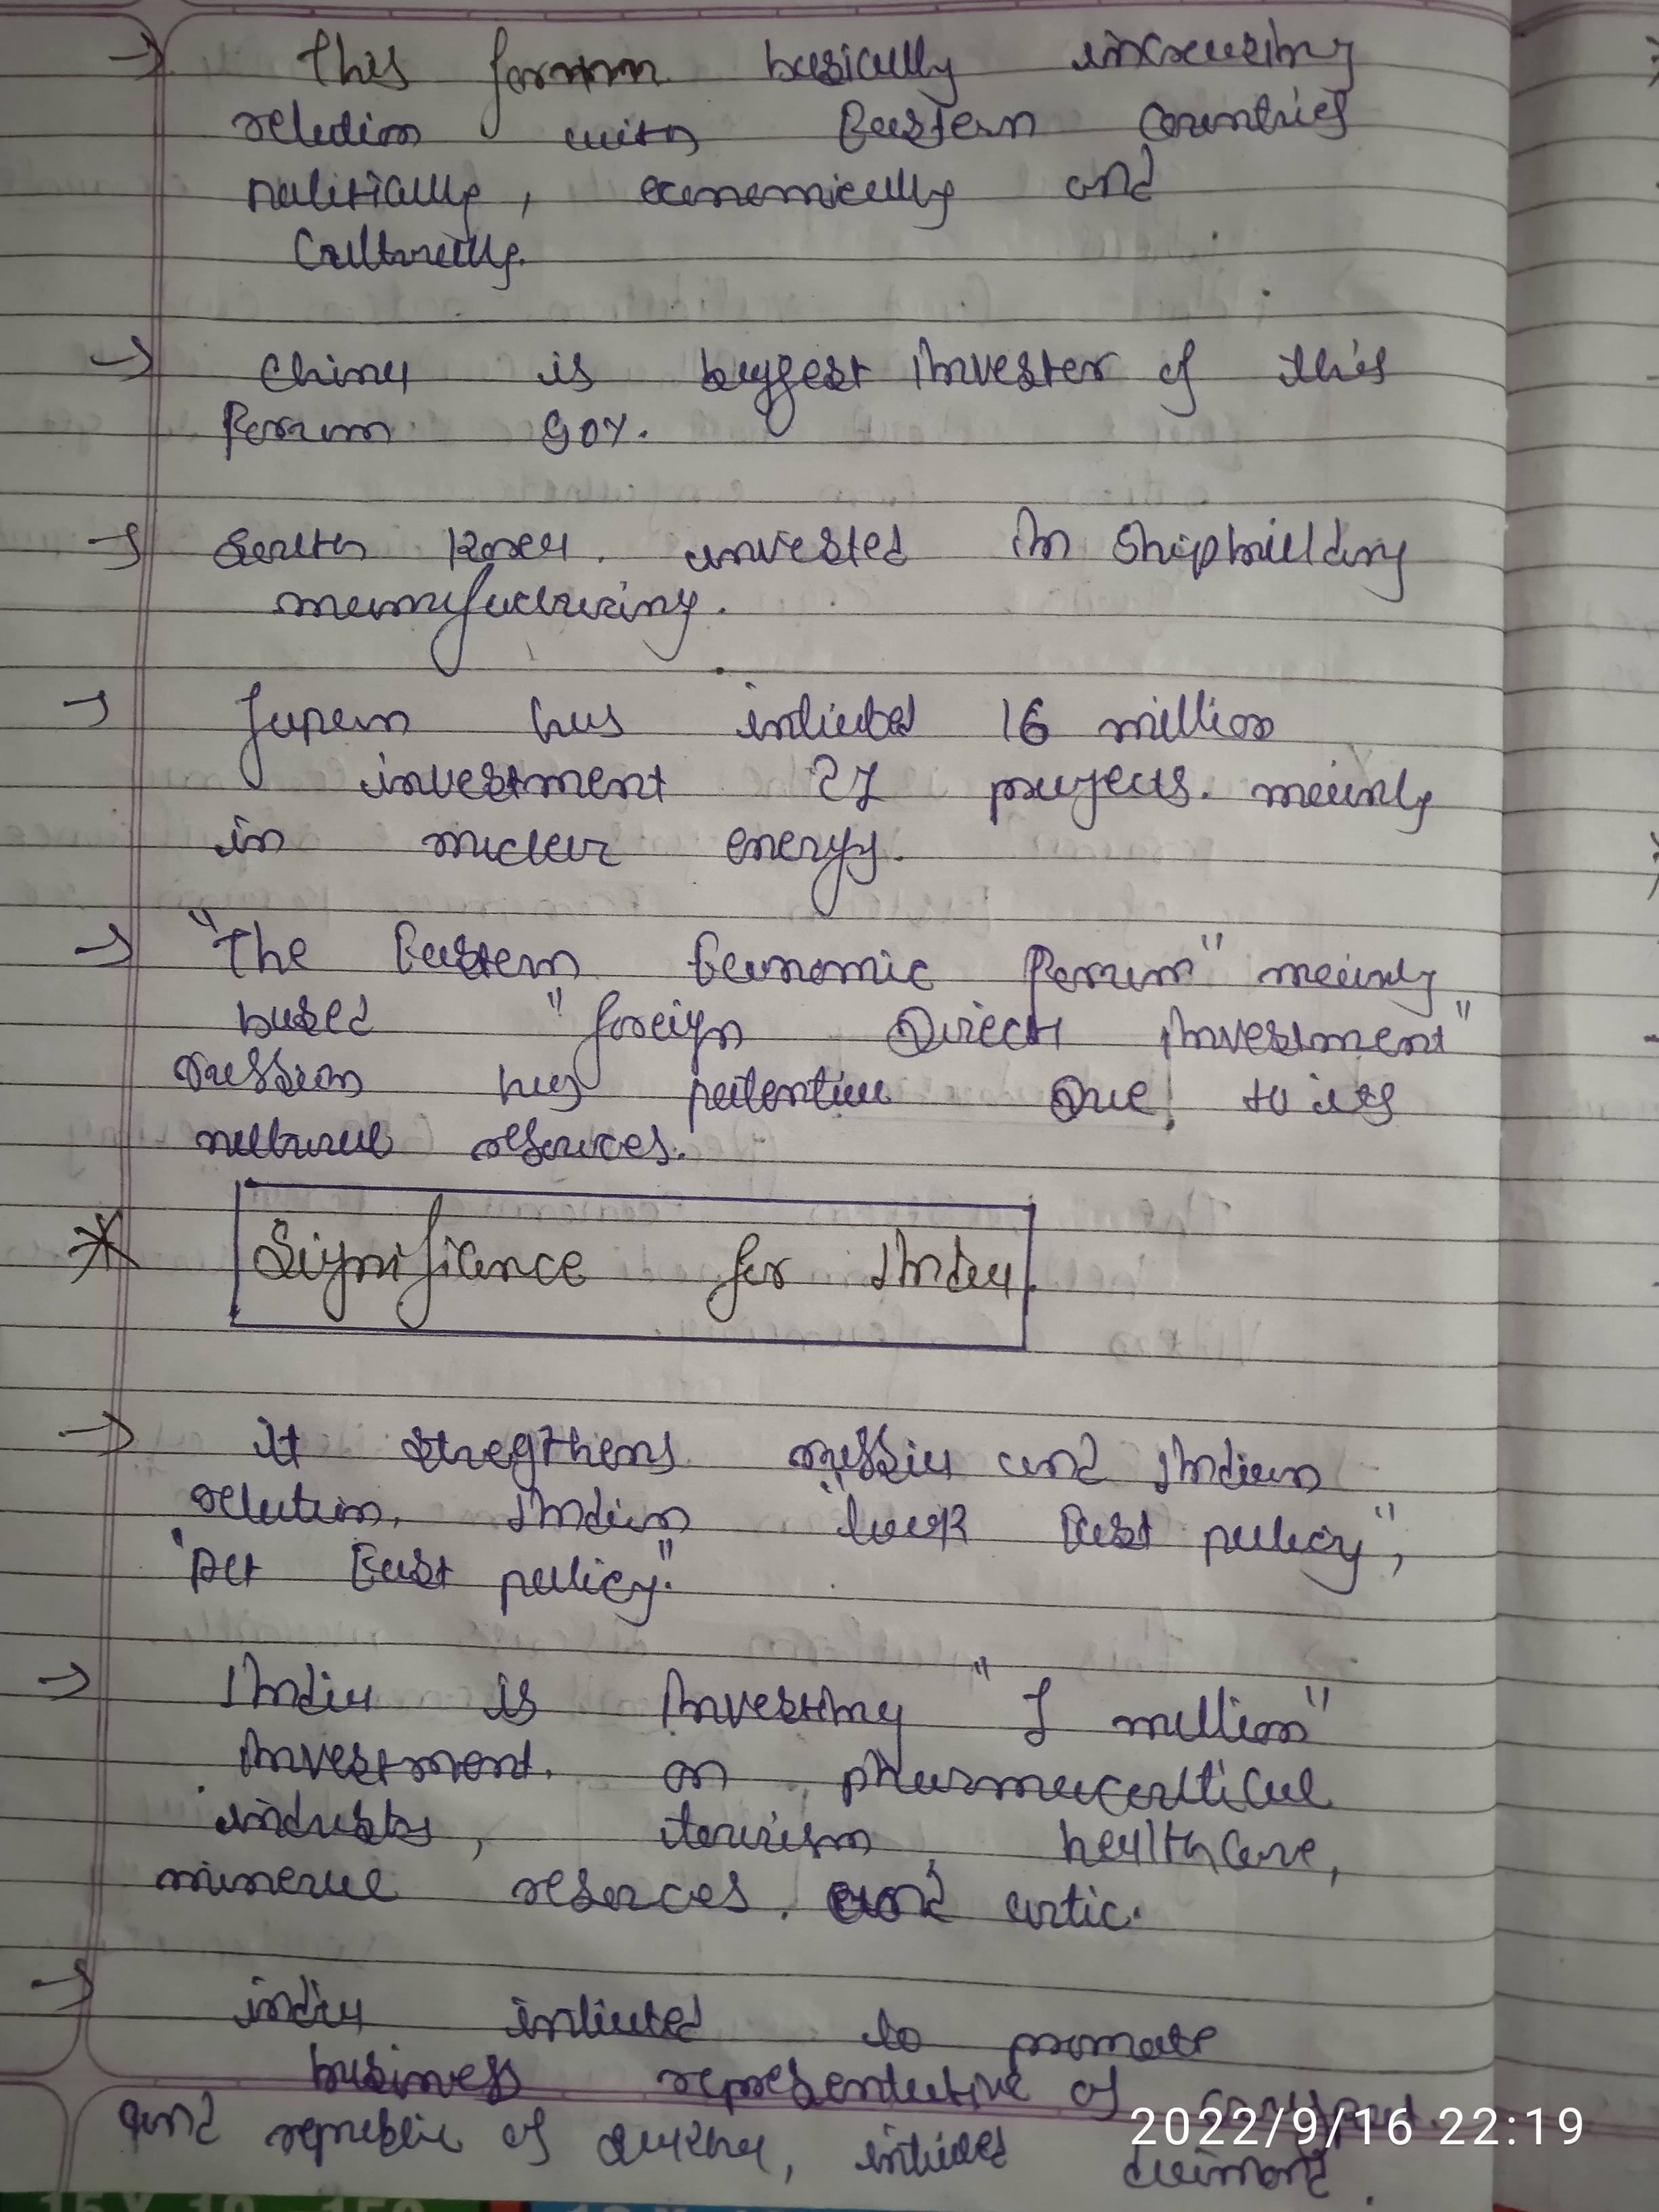 → This forum basically increasing
relation with Eastern countries
politically, economically and
Culturally.
→ China is biggest Invester of this
Forum 90%.
→ South Korea. invested in Shipbuilding
manufacturing.
→ Japan has intiated 16 million
investment 27 projects. mainly
in nuclear energy.
→ "The Eastern Economic Forum" mainly
based "foreign Direct Investment"
russian has potential Due to its
natural resources.
* Significance for India.
→ it stregthens russia and Indian
relation. Indian "look East policy",
"Act East policy."
→ India is Investing "1 million"
Investment. on pharmaceutical
industry, tourism, healthcare,
mineral resorces. and artic.
→ india intiated to promote
business representative of
and republic of intiated daimond.
2022/9/16 22:19